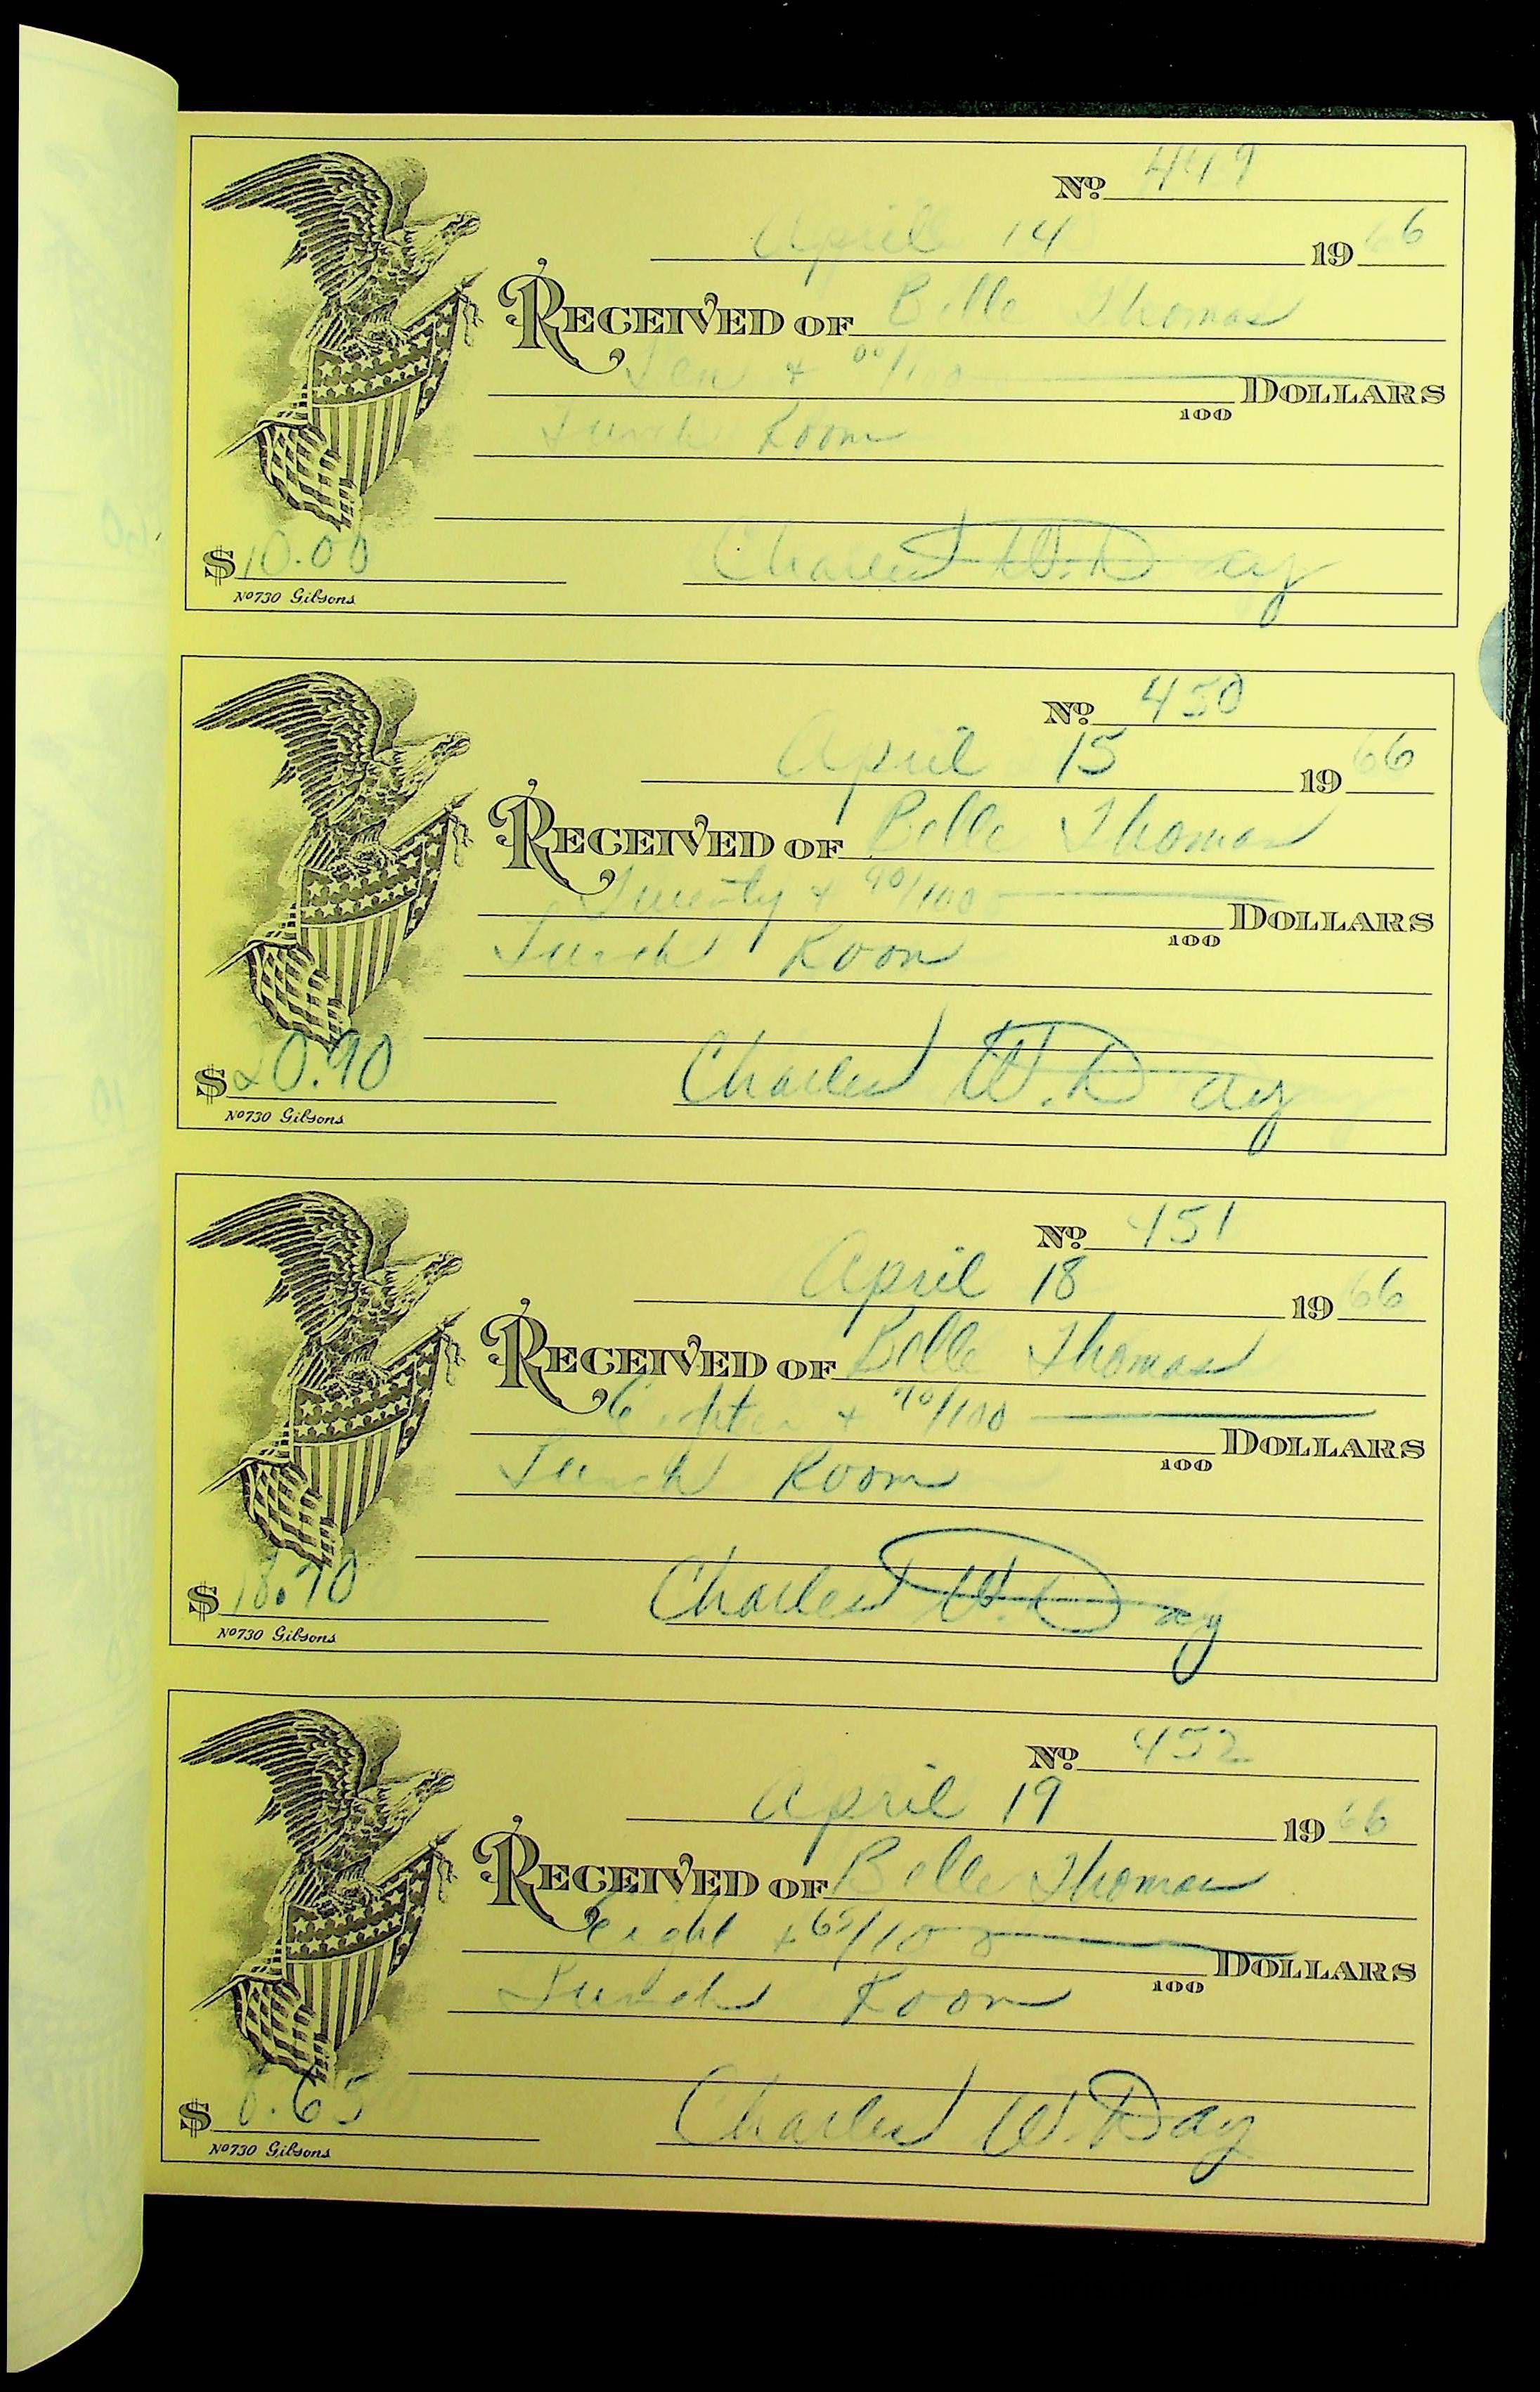 No. 449
April 14 1966
RECEIVED OF Belle Thomas
Ten + 00/100 DOLLARS
100
Lunch Room
$ 10.00 Charles W. Day
No 730 Gibsons
No. 450
April 15 1966
RECEIVED OF Belle Thomas
Twenty + 90/100 DOLLARS
100
Lunch Room
$ 20.90 Charles W. Day
No 730 Gibsons
No. 451
April 18 1966
RECEIVED OF Belle Thomas
+ /100 DOLLARS
100
Lunch Room
$ Charles W. Day
No 730 Gibsons
No. 452
April 19 1966
RECEIVED OF Belle Thomas
Eight + 65/100 DOLLARS
100
Lunch Room
$ 8.65 Charles W. Day
No 730 Gibsons